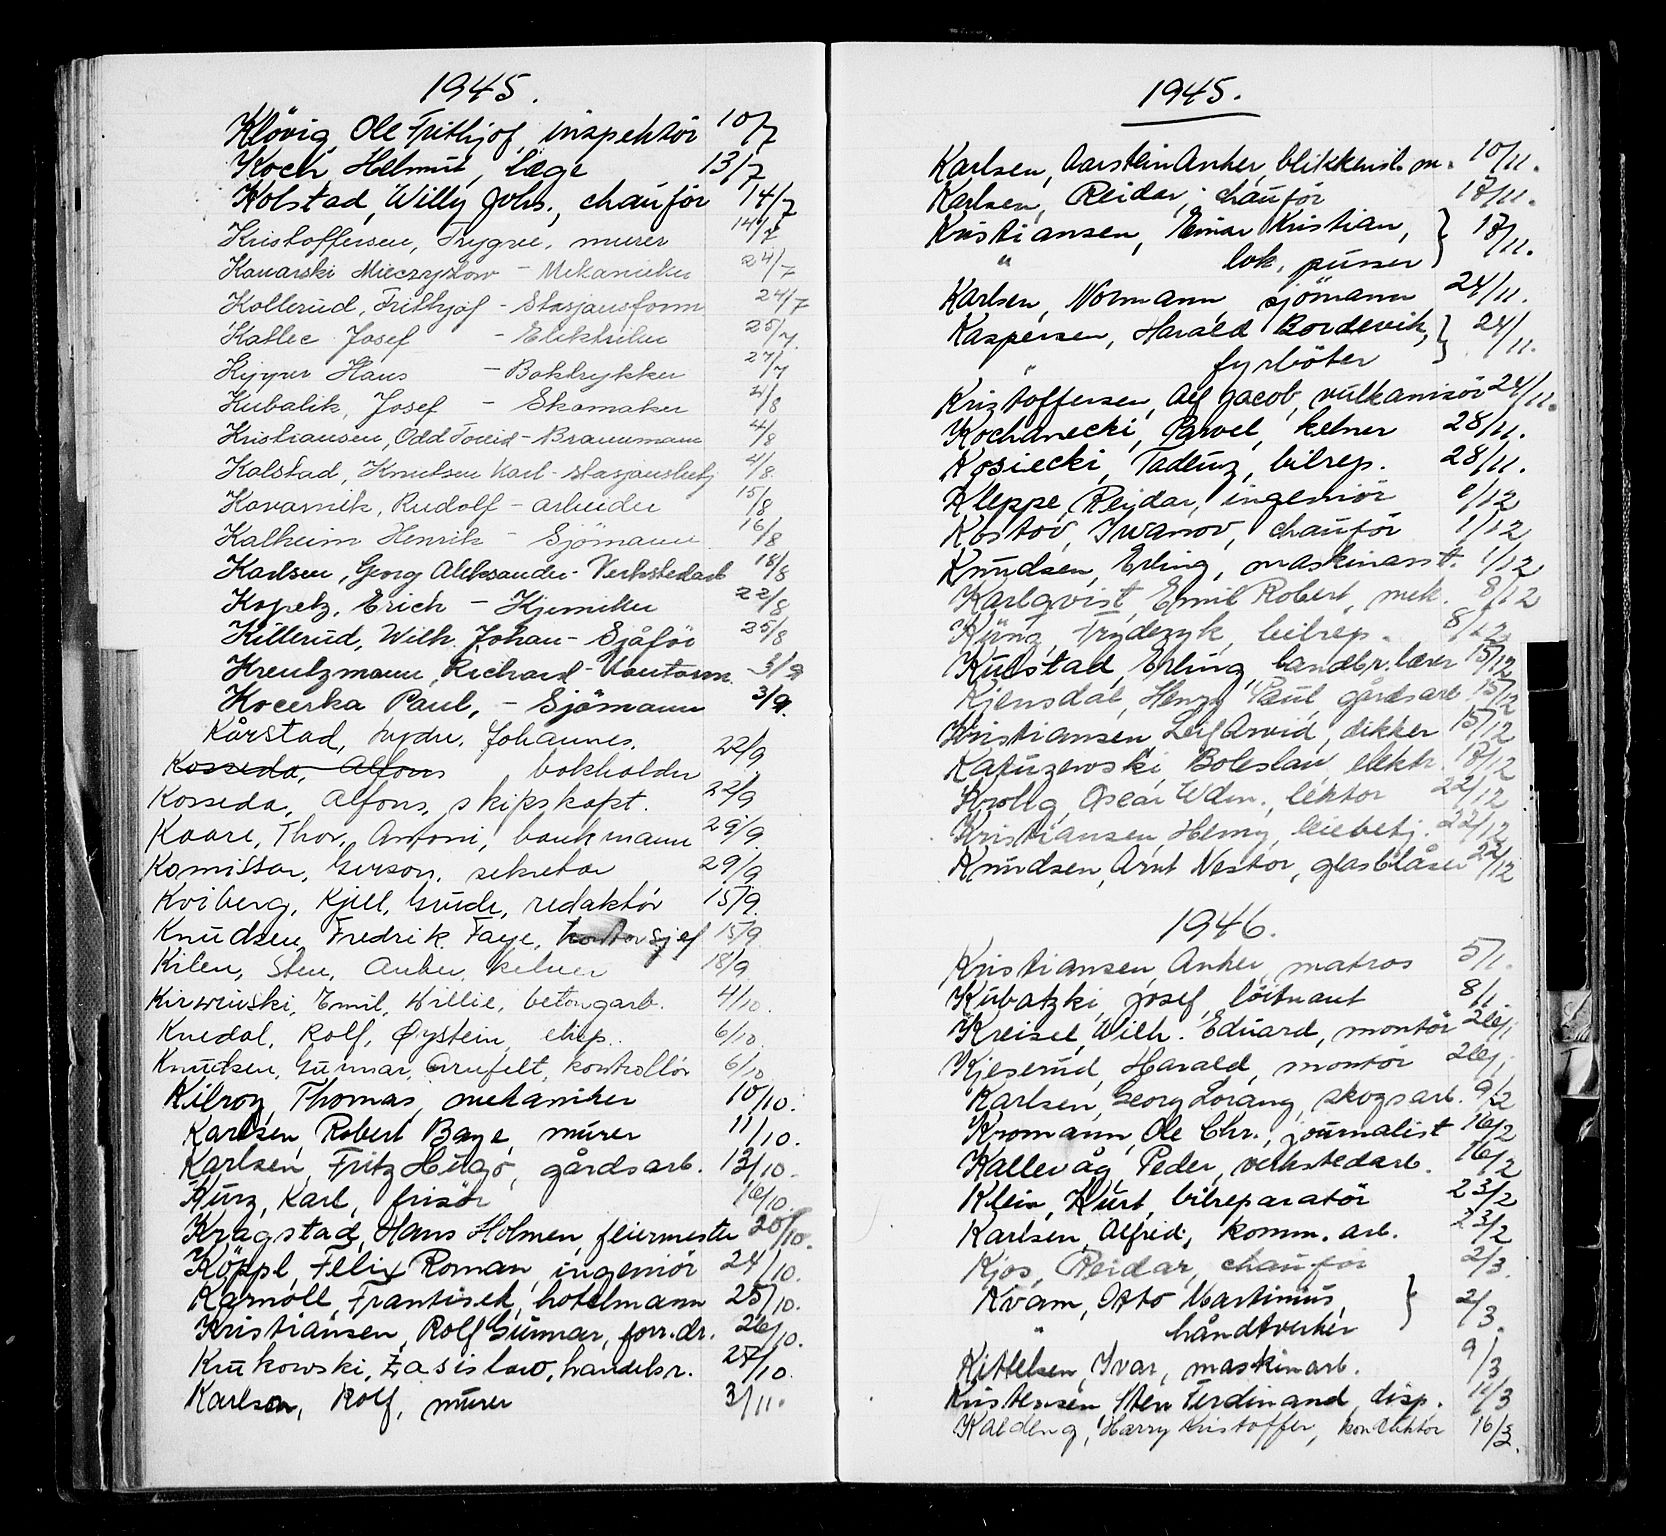 1945.
Klövig, Ole Frithjof, inspektör 10/7
Koch, Helmut, læge 13/7
Kolstad, Willy Johs., chauför 14/7
Kristoffersen, Trygve, murer 14/7
Kanarski Mieczyzlow - Mekaniker 24/7
Kollerud, Frithjof - Stasjonsform 24/7
Kallec Josef - Elektriker 25/7
Kyyper Hans - Boktrykker 27/7
Kubalik, Josef - Skomaker 4/8
Kristiansen, Odd - Brannmann 4/8
Kalstad, Knutsen Karl - stasjonsbetj 4/8
Kavarnik, Rudolf - arbeider 15/8
Kalheim Henrik - Sjömann 16/8
Karlsen, Georg Aleksander - Verkstedarb 18/8
Kopetz, Erich - Kjemiker 22/8
Killerud, Wilh. Johan - Sjåför 25/8
Kreutzmann, Richard - Kontorm. 3/9
Kocerka Paul, - Sjömann 3/9.
Kårstad, Johannes,
Kosseda, Alfons bokholder 22/9
Kosseda, Alfons, skipskapt. 22/9
Kaare, Thor, Antoni, bankmann 29/9.
Komissar, Gerson, sekretær 29/9
Kviberg, Kjell, Gude, redaktör 15/9.
Knudsen, Fredrik Faye, kontorsjef 15/9.
Kilen, Sten, Anker, kelner 18/9
Kirwinski, Emil, Willie, betongarb. 4/10.
Knedal, Rolf, Øystein, eksp. 6/10.
Knutsen, Gunnar, Arnfelt, kontrollör 6/10
Kilroy, Thomas, mekaniker 10/10.
Karlsen, Robert Baye, murer 11/10.
Karlsen, Fritz Hugo, gårdsarb. 13/10.
Kurz, Karl, frisör 16/10.
Kragstad, Hans Holmen, feiermester 20/10.
Köppl, Felix Roman, ingeniör 24/10.
Karnoll, Frantisek, hotelmann 25/10.
Kristiansen, Rolf Gunnar, forr.dr. 26/10.
Krukowski, Zasislaw, handelsr. 27/10.
Karlson, Rolf, murer 3/11.
1945.
Karlsen, Aarstein Anker, blikkensl. m. 10/11.
Karlsen, Reidar, chauför 17/11.
Kristiansen, Einar Kristian, } 17/11.
" lok. pusser
Karlsen, Normann, sjömann 24/11.
Kaspersen, Harald Bordevik, } 24/11.
" fyrböter
Kristoffersen, Alf Jacob, vulkanisör 24/11.
Kochanecki, Pavel, kelner 28/11.
Kosiecki, Tadeuz, bilrep. 28/11.
Kleppe, Reidar, ingeniör 1/12
Kostov, Iwanov, chauför 1/12
Knudsen, Erling, maskinasst. 1/12
Karlqvist, Emil Robert, mek. 8/12
Küng, Frydezyk, bilrep. 8/12
Kulstad, Erling, landbr.lærer 15/12
Kjensdal, Henry Paul, gårdsarb. 15/12
Kristiansen Leif Arvid, dikker 15/12
Kafuzewski, Boleslau, elektr. 18/12
Krohg, Oscar Wdm., lektor 22/12
Kristiansen, Henry, leiebetj. 22/12
Knudsen, Arnt Nestor, glasblåser 22/12
1946.
Kristiansen, Anker, matros 5/1.
Kubatzki, Josef, löitnant 8/1.
Kreisel, Wilh. Eduard, montör 26/1
Kjeserud, Harald, montör 26/1
Karlsen, Georg Lorang, skogsarb. 9/2
Kromann, Ole Chr., journalist 16/2
Kallevåg, Peder, verkstedarb. 16/2
Klein, Kurt, bilreparatör 23/2
Karlsen, Alfred, komm. arb. 23/2
Kjos, Reidar, chauför 2/3.
Kvam, Otto Martinius, } 2/3.
" håndtverker
Kittelsen, Ivar, maskinarb. 9/3
Kristensen, Sten Ferdinand, disp. 11/3
Kaldeng, Harry Kristoffer, konduktör 16/3.